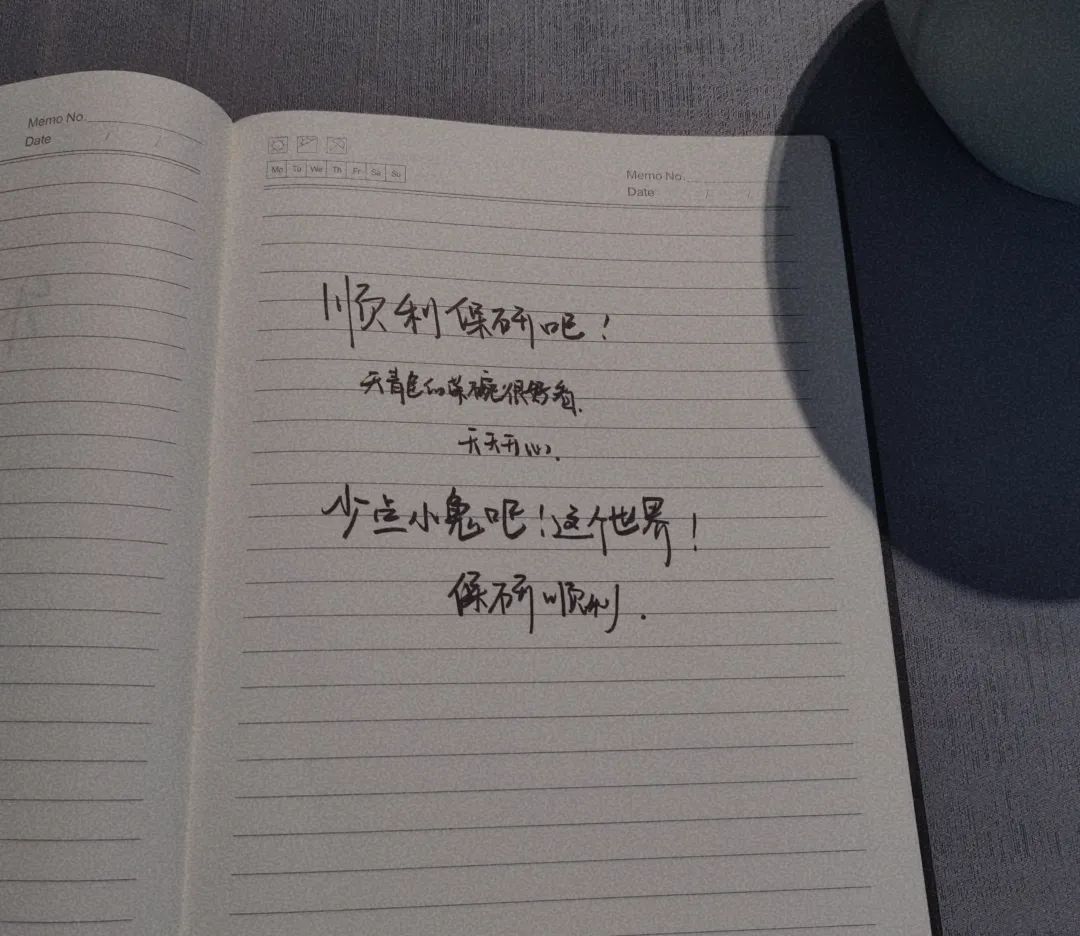 Memo No.
Date / /
Mo Tu We Th Fr Sa Su
Memo No.
Date / /
顺利保研吧！
天青色的茶碗很好看.
天天开心.
少点小鬼吧！这个世界！
保研顺利.